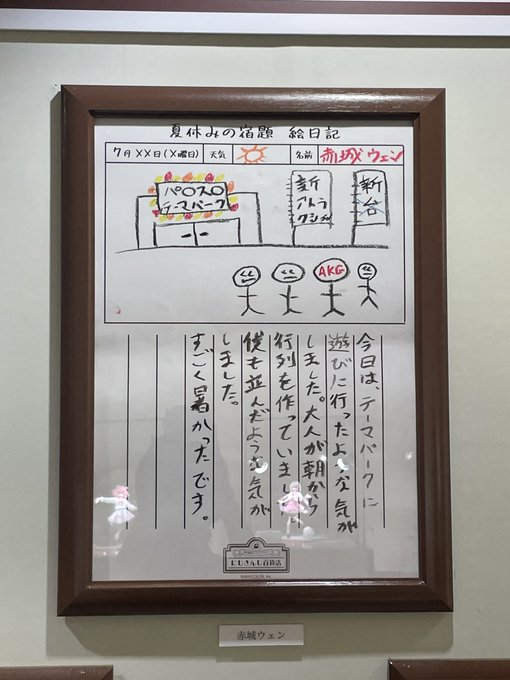 夏休みの宿題 絵日記
7月××日(×曜日) 天気 名前 赤城ウェン
パロスロ
テーマパーク
新
アトラ
クション
新
台
AKG
今日は、テーマパークに
遊びに行ったような気が
しました。大人が朝から
行列を作っていまし
僕も並んだような気が
しました。
すごく暑かったです。
にじさんじ百貨店
©ANYCOLOR, Inc.
赤城ウェン